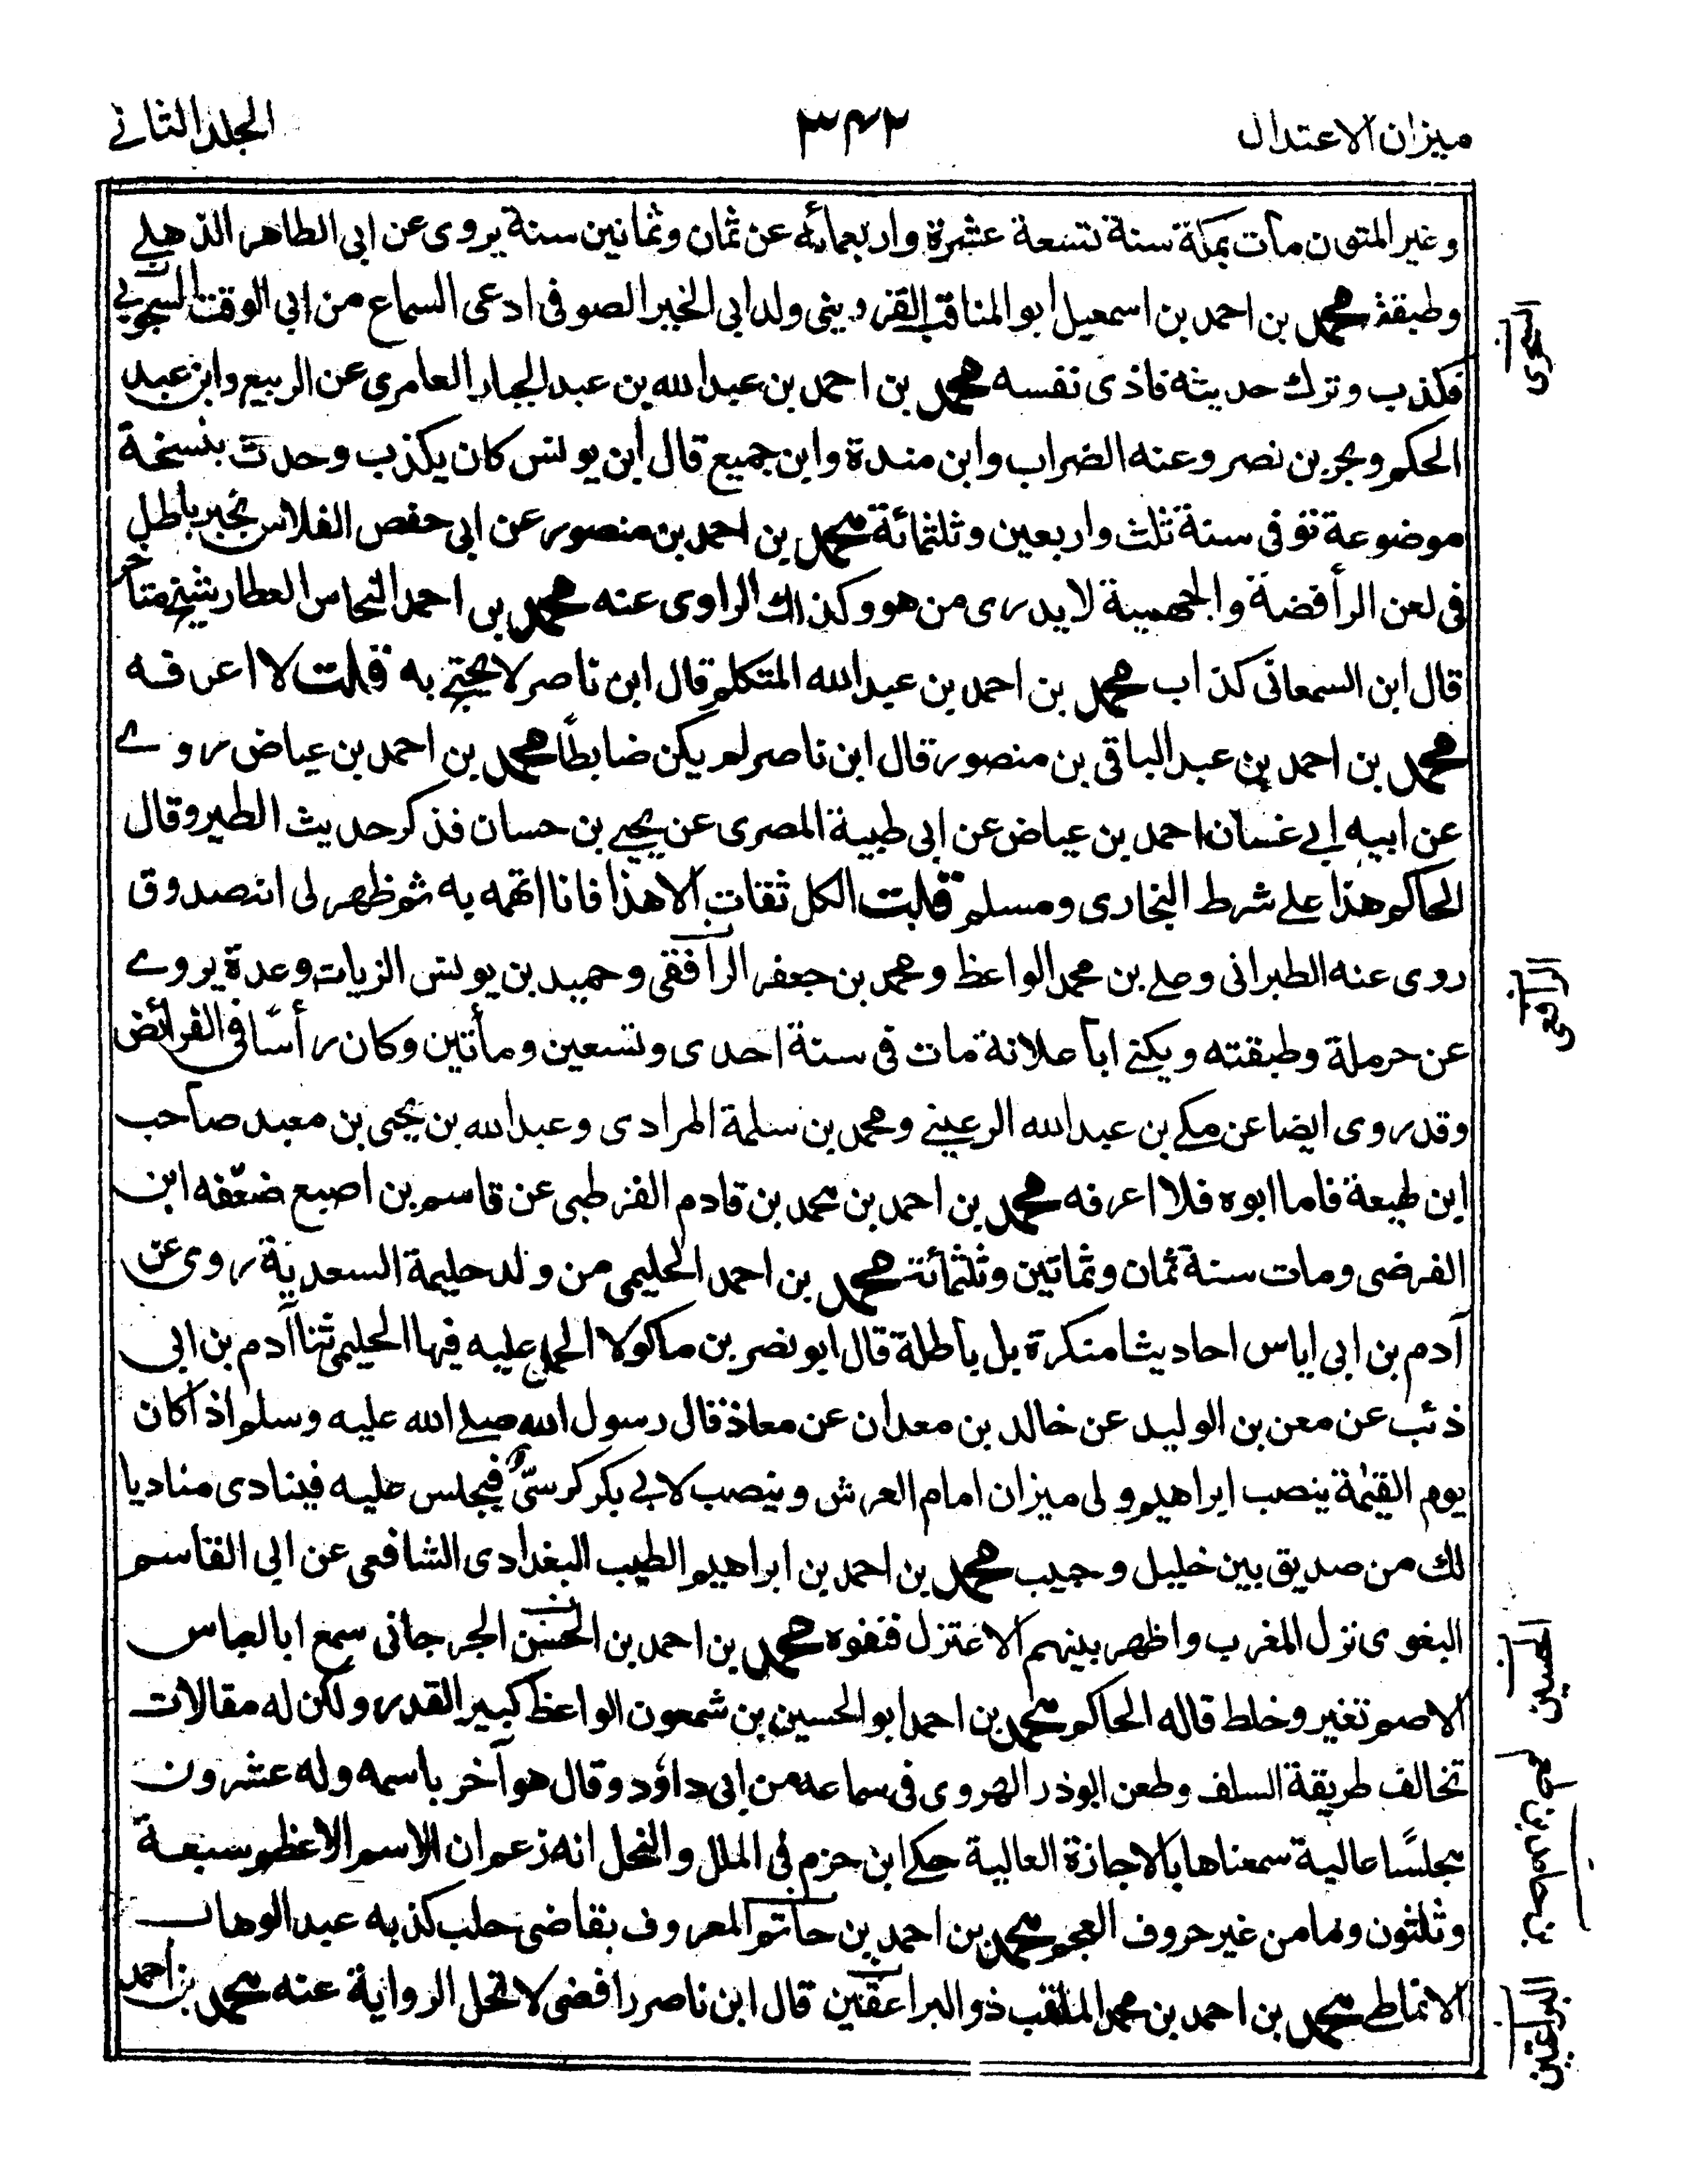 ميزان الاعتدال
٣٤٢
الجلد الثاني
وغير المتون مات بمكة سنة تسعة عشرة واربعمائه عن ثمان وثمانين سنة يروى عن ابى الطاهر الذهلے
وطبقة محمد بن احمد بن اسمعيل ابو المناقب القزوينى ولد ابى الخير الصوفى ادعى السماع من ابى الوقت
فكذب وترك حديثه فاذى نفسه محمد بن احمد بن عبد الله بن عبد الجبار العامرى عن الربيع وابن عبد
الحكم وبحر بن نصر وعنه الضراب وابن مندة وابن جميع قال ابن يونس كان يكذب وحدث بنسخة
موضوعة توفى سنة ثلث واربعين وثلثمائة محمد بن احمد بن منصور عن ابى حفص الفلاس بخبر باطل
فى لعن الرافضة والجهمية لا يدرى من هو وكذاك الراوى عنه محمد بن احمد النحاس العطار شيخ متاخر
قال ابن السمعانى كذاب محمد بن احمد بن عبد الله المتكلم قال ابن ناصر لا يحتج به قلت لا اعرفه
محمد بن احمد بن عبد الباقى بن منصور قال ابن ناصر لم يكن ضابطاً محمد بن احمد بن عياض روے
عن ابيه ابے غسان احمد بن عياض عن ابى طيبة المصرى عن يحيے بن حسان فذكر حديث الطير وقال
الحاكم هذا علے شرط البخارى ومسلم قلت الكل ثقات الا هذا فانا اتهمه به ثم ظهر لى انه صدوق
روى عنه الطبرانى وعلے بن محمد الواعظ ومحمد بن جعفر الرافقى وحميد بن يونس الزيات وعدة يروے
عن حرملة وطبقته ويكنے ابا علانة مات فى سنة احدى وتسعين ومأتين وكان رأسًا فى الفرائض
وقد روى ايضا عن مكے بن عبد الله الرعينے ومحمد بن سلمة المرادى وعبد الله بن يحيى بن معبد صاحب
ابن لهيعة فاما ابوه فلا اعرفه محمد بن احمد بن محمد بن قادم القرطبى عن قاسم بن اصبغ ضعّفه ابن
الفرضى ومات سنة ثمان وثمانين وثلثمائة محمد بن احمد الحليمى من ولد حليمة السعدية روى عن
آدم بن ابى اياس احاديثا منكرة بل باطلة قال ابو نصر بن ماكولا الحمل عليه فيها الحليمى ثنا آدم بن ابى
ذئب عن معن بن الوليد عن خالد بن معدان عن معاذ قال رسول الله صلے الله عليه وسلم اذا كان
يوم القيٰمة ينصب ابراهيم ولى ميزان امام العرش وينصب لابے بكر كرسىّ فيجلس عليه فينادى مناديا
لك من صديق بين خليل وحبيب محمد بن احمد بن ابراهيم الطيب البغدادى الشافعى عن ابى القاسم
البغوى نزل المغرب واظهر بينهم الاعتزل فنفوه محمد بن احمد بن الحسن الجرجانى سمع ابا العباس
الاصم تغير وخلط قاله الحاكم محمد بن احمد ابو الحسين بن شمعون الواعظ كبير القدر ولكن له مقالات
تخالف طريقة السلف وطعن ابو ذر الهروى فى سماعه من ابى داؤد وقال هو آخر باسمه وله عشرون
مجلسًا عالية سمعناها بالاجازة العالية حكے ابن حزم فى الملل والنحل انه زعم ان الاسم الاعظم سبعة
وثلثون وما من غير حروف العجم محمد بن احمد بن حاتم المعروف بقاضى حلب كذبه عبد الوهاب
الانماطے محمد بن احمد بن محمد الملقب ذو البراعقين قال ابن ناصر رافضى لا تحل الرواية عنه محمد بن احمد
الرافعى
الحسين
بن حامد بن
البراعتين